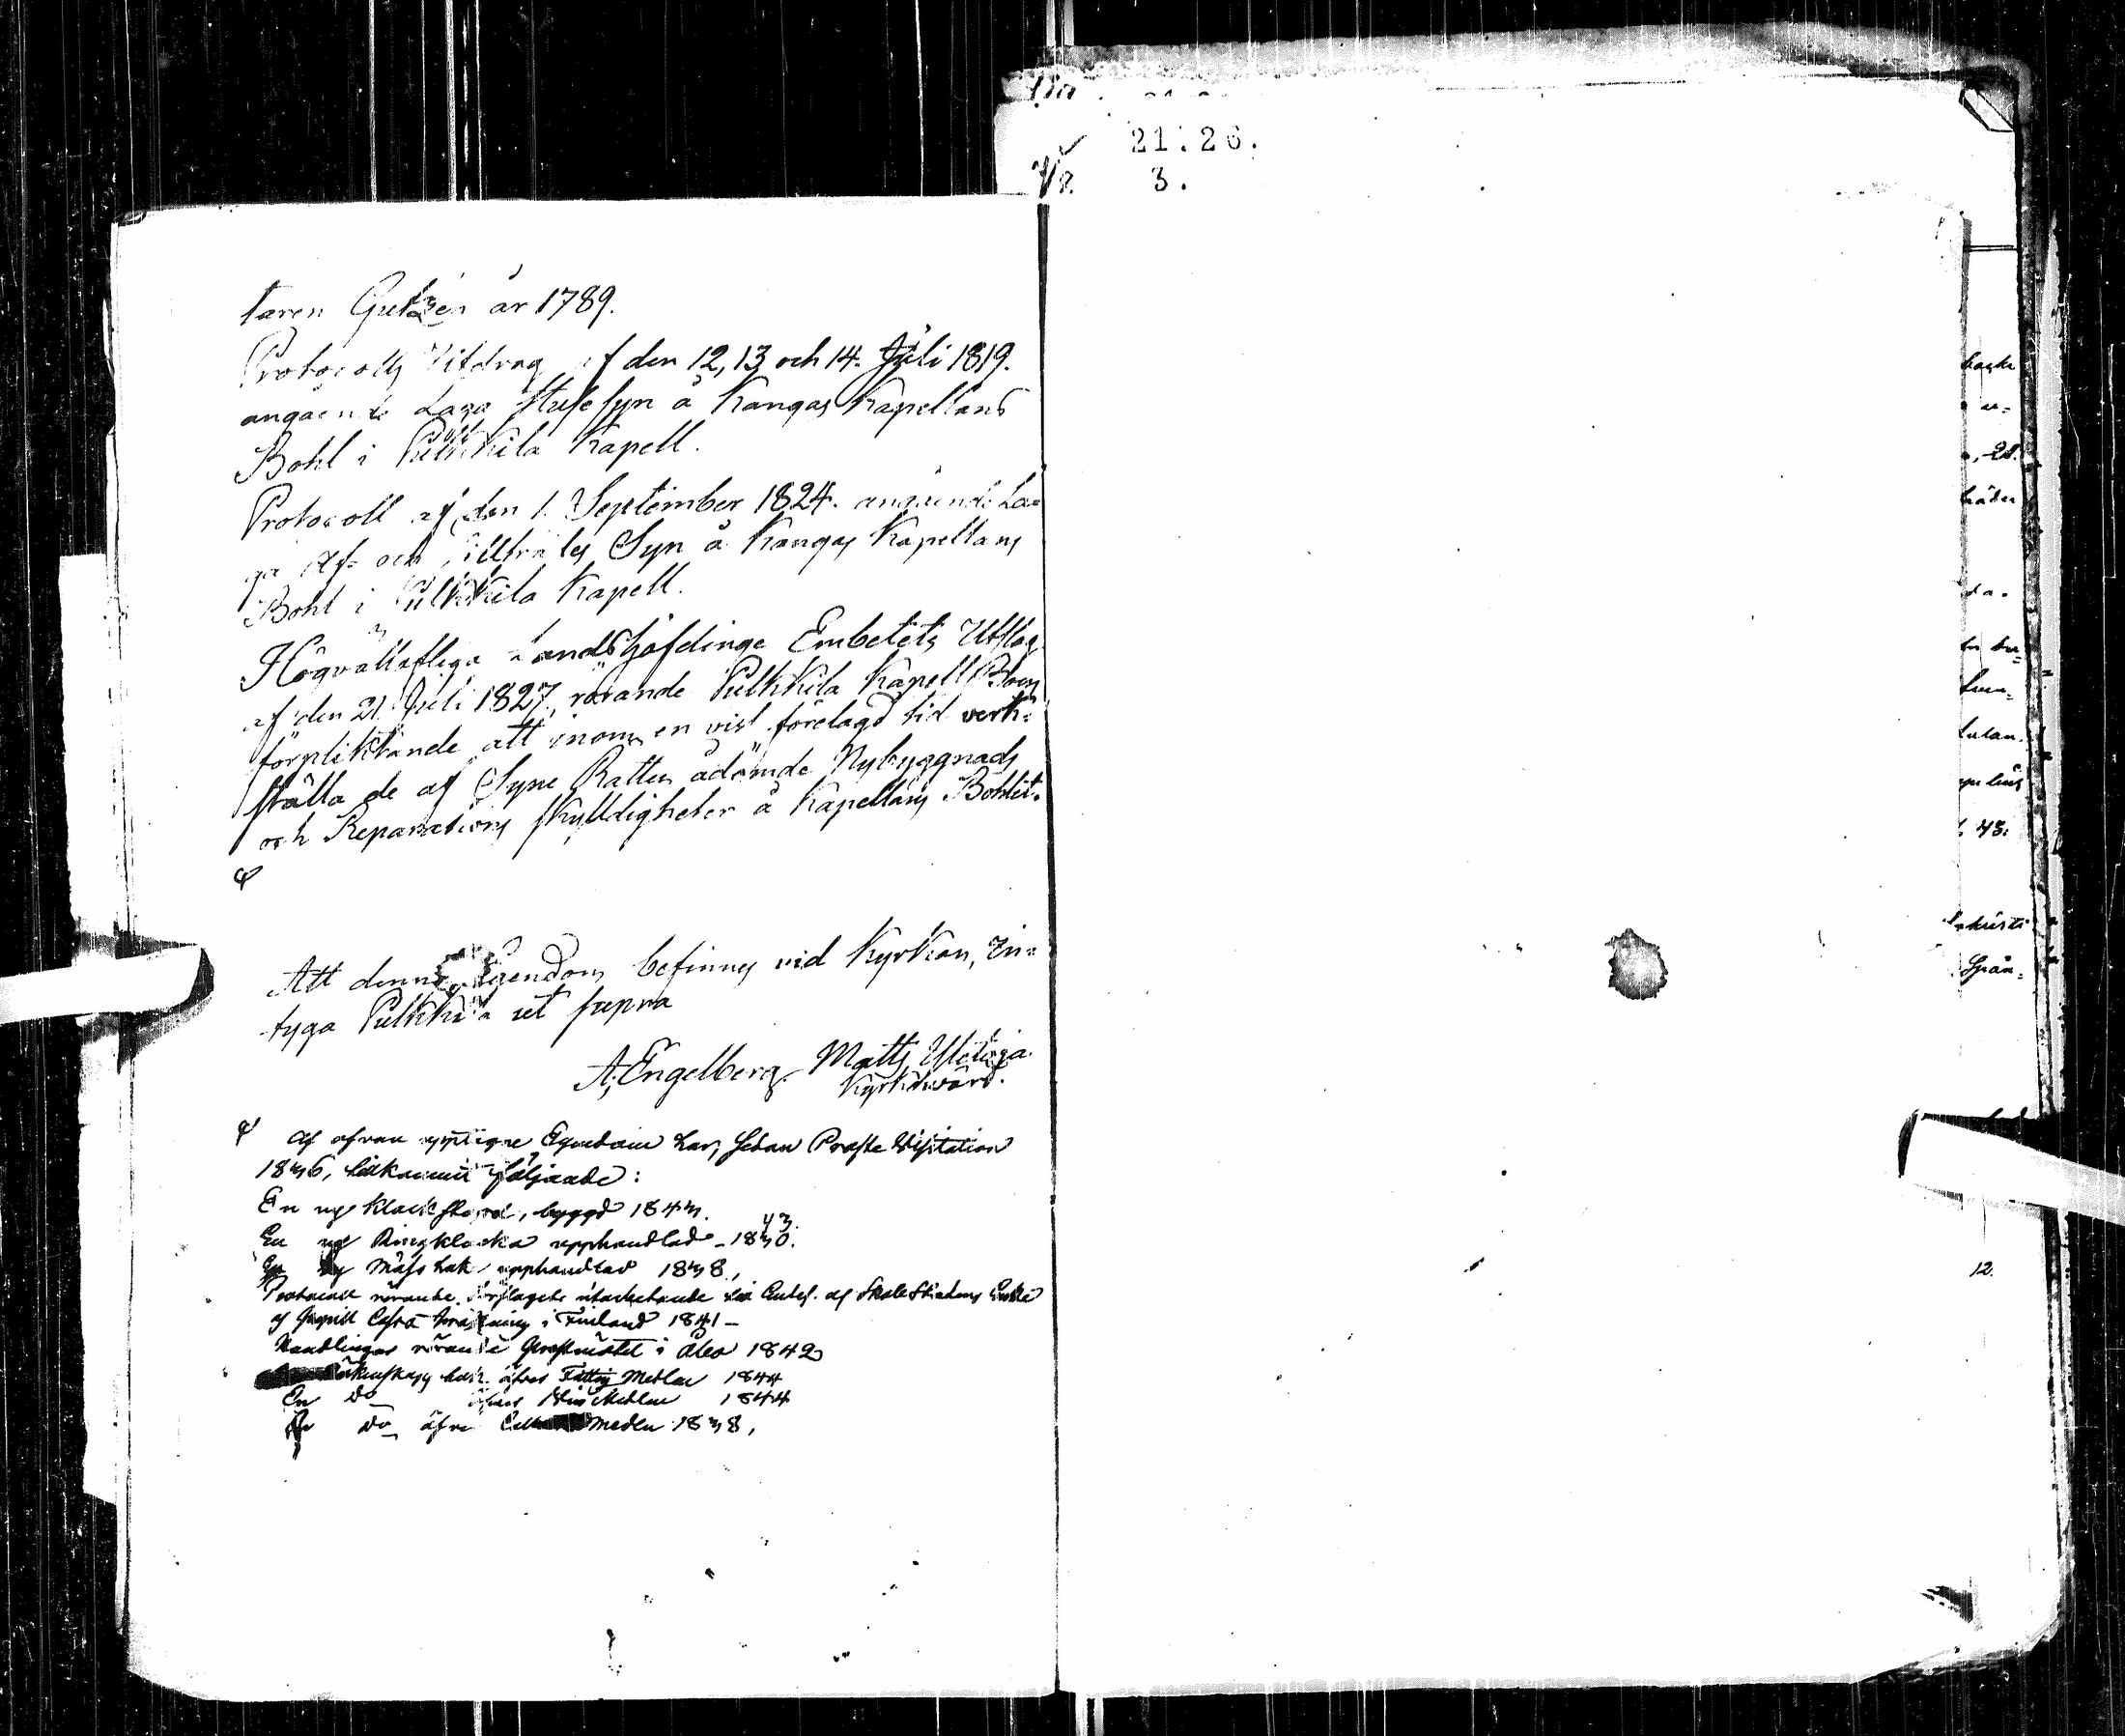 taren Gutzén år 1789.
Protocolls Utdrag af den 12, 13 och 14. Juli 1819.
angående Laga Husesyn å Kangas Kapellans
Bohl i Pulkkila Kapell.
Protocoll af den 1. September 1824. angående La=
ga Af= och Tillträdes Syn å Kangas Kapellans
Bohl i Pulkkila Kapell.
Högvällofliga Landshöfdinge Embetets Utslag
af den 21. Juli 1827, rörande Pulkkila Kapell Boers
förpliktande att inom en viss förelagd tid verk=
ställa de af Syne Rätten ådömde Nybyggnads
och Reparations skylldigheter å Kapellans Bohlet.
Att denna Egendom befinnes vid Kyrkan, in=
tyga Pulkkila ut supra
A. Engelberg. Matts
Kyrkovärd.
Af ofvan Egendom har, sedan Prosts Visitation
1836, tillkommit följande:
En ny Klockstapel, byggd 1843.
43.
En ny Ringklocka upphandlad - 1830.
En ny Mäss hake upphandlad 1838,
Protocoll rörande förslagets utarbetande
i Finland 1841 -
Handlingar rörande Prestmötet i Åbo 1842
Räkenskaps bok öfver Fattig Medlen 1844
En do öfver Medlen 1844
En do öfver Medlen 1838,
21.26.
3.
43.
12.